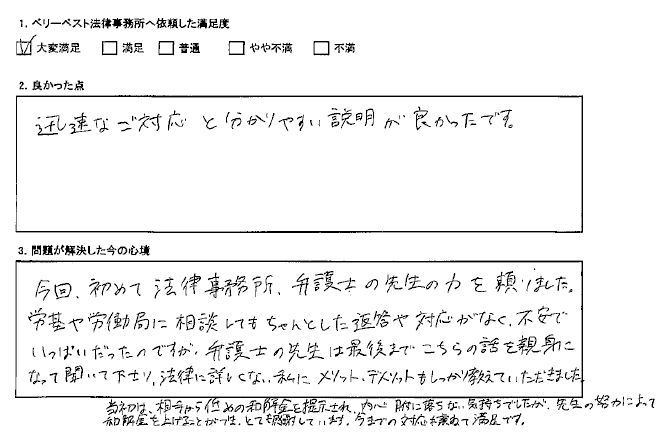 1. ベリーベスト法律事務所へ依頼した満足度
大変満足 満足 普通 やや不満 不満
2. 良かった点
迅速なご対応と分かりやすい説明が良かったです。
3. 問題が解決した今の心境
今回、初めて法律事務所、弁護士の先生の力を頼りました。
労基や労働局に相談してもちゃんとした返答や対応がなく、不安で
いっぱいだったのですが、弁護士の先生は最後までこちらの話を親身に
なって聞いて下さり、法律に詳しくない私にメリット、デメリットもしっかり教えていただきました
当初は、相手から低めの和解金を提示され、内心腑に落ちない気持ちでしたが、先生の努力によって
和解金を上げることができ、とても感謝しています。今までの対応も兼ねて満足です。